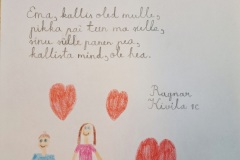 Ema, kallis oled mulle,
pikka pai teen ma sulle,
sinu sülle panen pea,
kallista mind, ole hea.
Ragnar
Kivilo 1C